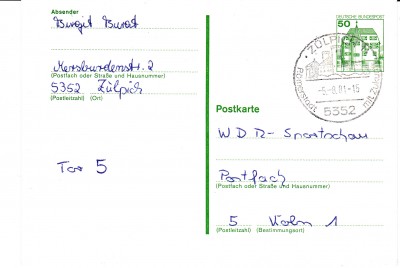 Absender
Birgit
(Postfach oder Straße und Hausnummer)
5352 Zülpich
(Postleitzahl) (Ort)
Tor 5
DEUTSCHE BUNDESPOST
50
ZÜLPICH
Römerstadt mit
5352
Postkarte
WDR-Sportschau
Postfach
(Postfach oder Straße und Hausnummer)
5 Köln 1
(Postleitzahl) (Bestimmungsort)